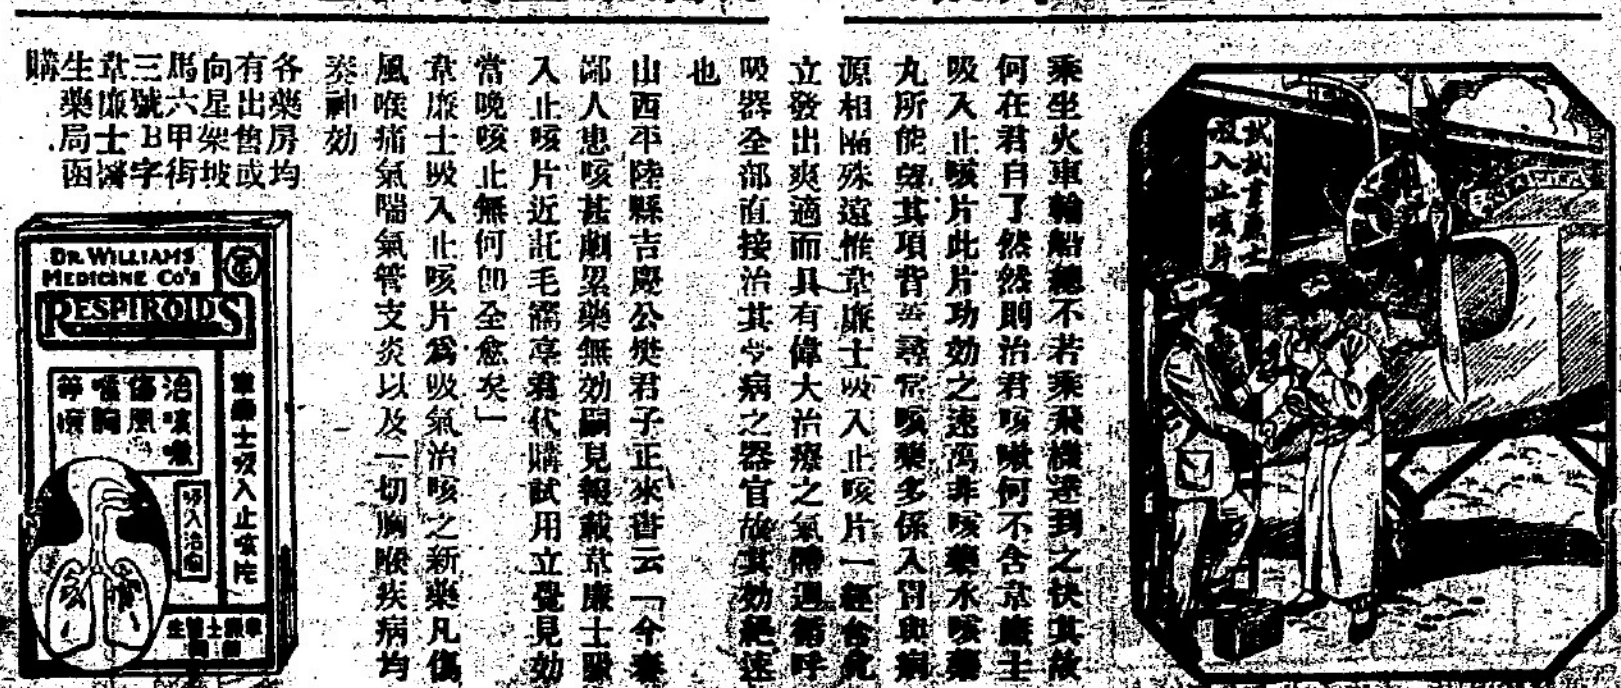 試試韋廉士
吸入止咳片
乘坐火車輪船總不若乘飛機達到之快其故
何在君自了然然則治君咳嗽何不含韋廉士
吸入止咳片此片功効之速萬非咳藥水咳藥
丸所能望其項背蓋尋常咳藥多係入胃與病
源相隔殊遠惟韋廉士吸入止咳片一經含
立發出爽適而具有偉大治療之氣循呼
吸器全部直接治其病之器官故其効絕速
也
山西平陸縣吉慶公樊君子正來書云「今春
鄙人患咳甚劇累藥無効嗣見報載韋廉士吸
入止咳片近託毛君代購試用立覺見効
當晚咳止無何卽全愈矣」
韋廉士吸入止咳片爲吸氣治咳之新藥凡傷
風喉痛氣喘氣管支炎以及一切胸喉疾病均
奏神効
各藥房均
有出售或
向星架坡
馬六甲街
三號B字
韋廉士醫
生藥局函
購
DR. WILLIAMS
MEDICINE CO'S
RESPIROIDS
韋廉士吸入止咳片
治咳嗽
傷風
等病
吸入治病
韋廉士醫生